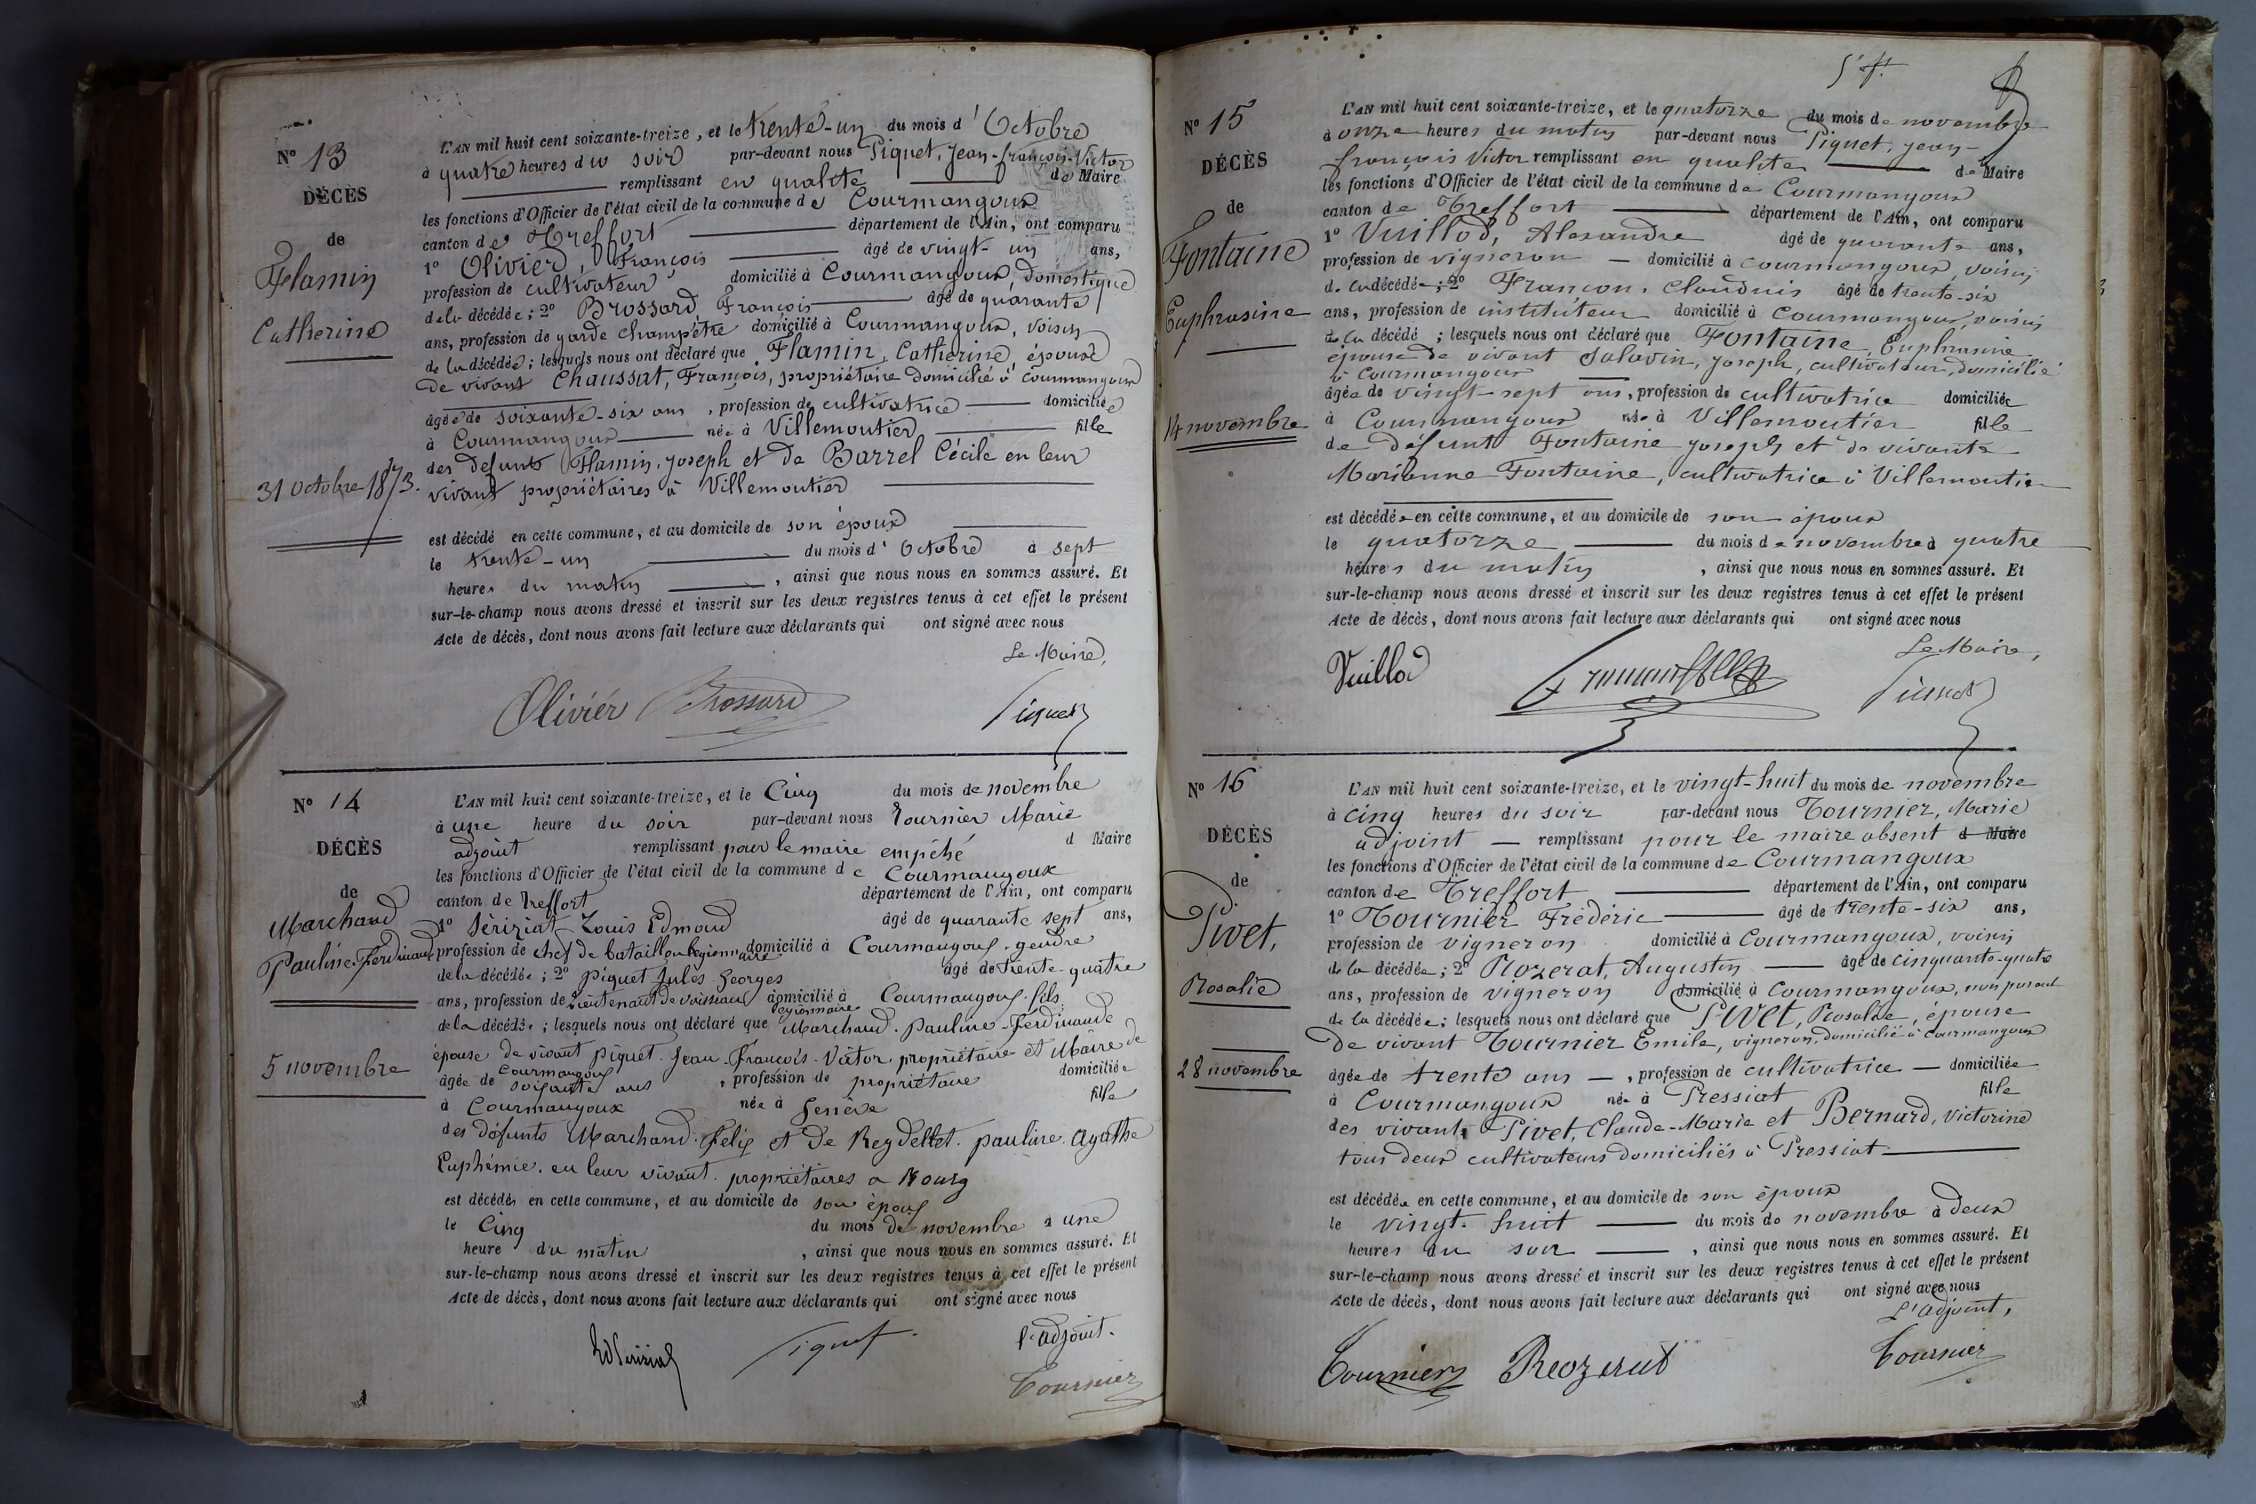 N° 13
DÉCÈS
de
Flamin
Catherine
31 Octobre 1873.
L'AN mil huit cent soixante-treize, et le trente-un du mois d'Octobre
à quatre heures du soir par-devant nous Piquet, Jean-françois-Victor
remplissant en qualité de Maire
les fonctions d'Officier de l'état civil de la commune de Courmangoux
canton de Treffort département de l'Ain, ont comparu
1° Olivier, François âgé de vingt-un ans,
profession de cultivateur domicilié à Courmangoux, domestique
de la décédée; 2° Brossard, François âgé de quarante
ans, profession de garde champêtre domicilié à Courmangoux, voisin
de la décédée; lesquels nous ont déclaré que Flamin, Catherine, épouse
de vivant Chaussat, François, propriétaire domicilié à Courmangoux
âgée de soixante-six ans, profession de cultivatrice domiciliée
à Courmangoux née à Villemoutier fille
des defunts Flamin, Joseph et de Barrel Cécile en leur
vivant propriétaires à Villemoutier
est décédé en cette commune, et au domicile de son époux
le trente-un du mois d'Octobre à sept
heures du matin, ainsi que nous nous en sommes assuré. Et
sur-le-champ nous avons dressé et inscrit sur les deux registres tenus à cet effet le présent
Acte de décès, dont nous avons fait lecture aux déclarants qui ont signé avec nous
Le Maire,
Olivier Brossard Piquet
N° 14
DÉCÈS
de
Marchand
Pauline-Ferdinande
5 novembre
L'AN mil huit cent soixante-treize, et le Cinq du mois de novembre
à une heure du soir par-devant nous Tournier Marie
adjoint remplissant pour le maire empéhé d Maire
les fonctions d'Officier de l'état civil de la commune de Courmangoux
canton de Treffort département de l'Ain, ont comparu
1° Sériziat Louis Edmond âgé de quarante sept ans,
profession de chef de bataillon légionnaire domicilié à Courmangoux. gendre
de la décédée; 2° Piquet Jules Georges âgé de trente-quatre
ans, profession de Lieutenant de vaisseau légionnaire domicilié à Courmangoux. fils
de la décédée; lesquels nous ont déclaré que Marchand. Pauline-Ferdinande
épouse de vivant Piquet. Jean-François-Victor. propriétaire et Maire de
Courmangoux
âgée de soixante ans, profession de propriétaire domiciliée
à Courmangoux née à Genève fille
des défunts Marchand. Félix et de Reydellet. pauline. Agathe
Euphémie. en leur vivant. propriétaires à Bourg
est décédée en cette commune, et au domicile de son époux
le Cinq du mois de novembre à une
heure du matin, ainsi que nous nous en sommes assuré. Et
sur-le-champ nous avons dressé et inscrit sur les deux registres tenus à cet effet le présent
Acte de décès, dont nous avons fait lecture aux déclarants qui ont signé avec nous
l'adjoint.
Ed Sériziat Piquet Tournier
N° 15
DÉCÈS
de
Fontaine
Euphrasine
14 novembre
L'AN mil huit cent soixante-treize, et le quatorze du mois de novembre
à onze heures du matin par-devant nous Piquet, jean-
françois Victor remplissant en qualité de Maire
les fonctions d'Officier de l'état civil de la commune de Courmangoux
canton de Treffort département de l'Ain, ont comparu
1° Vuillod, Alexandre âgé de quarante ans,
profession de vigneron domicilié à Courmangoux, voisin
de la décédée; 2° Françon, Claudius âgé de trente-six
ans, profession de instituteur domicilié à Courmangoux, voisin
de la décédé; lesquels nous ont déclaré que Fontaine, Euphrasine
épouse de vivant Salavin, Joseph, cultivateur, domicilié
à Courmangoux
âgée de vingt-sept ans, profession de cultivatrice domiciliée
à Courmangoux née à Villemoutier fille
de défunt Fontaine joseph et de vivante
Marianne Fontaine, cultivatrice à Villemoutier
est décédée en cette commune, et au domicile de son époux
le quatorze du mois de novembre à quatre
heures du matin, ainsi que nous nous en sommes assuré. Et
sur-le-champ nous avons dressé et inscrit sur les deux registres tenus à cet effet le présent
Acte de décès, dont nous avons fait lecture aux déclarants qui ont signé avec nous
Le Maire,
Vuillod Piquet
N° 16
DÉCÈS
de
Pivet,
Rosalie
28 novembre
L'AN mil huit cent soixante-treize, et le vingt-huit du mois de novembre
à cinq heures du soir par-devant nous Tournier, Marie
adjoint remplissant pour le maire absent d Maire
les fonctions d'Officier de l'état civil de la commune de Courmangoux
canton de Treffort département de l'Ain, ont comparu
1° Tournier Frédéric âgé de trente-six ans,
profession de vigneron domicilié à Courmangoux, voisin
de la décédée; 2° Rozerat, Augustin âgé de cinquante-quatre
ans, profession de vigneron domicilié à Courmangoux, non parent
de la décédée; lesquels nous ont déclaré que Pivet, Rosalie, épouse
de vivant Tournier Emile, vigneron, domicilié à Courmangoux
âgée de trente ans, profession de cultivatrice domiciliée
à Courmangoux née à Pressiat fille
des vivants Pivet, Claude-Marie et Bernard, Victorine
tous deux cultivateurs domiciliés à Pressiat
est décédée en cette commune, et au domicile de son époux
le vingt-huit du mois de novembre à deux
heures du soir, ainsi que nous nous en sommes assuré. Et
sur-le-champ nous avons dressé et inscrit sur les deux registres tenus à cet effet le présent
Acte de décès, dont nous avons fait lecture aux déclarants qui ont signé avec nous
L'adjoint,
Tournier Rozerat Tournier